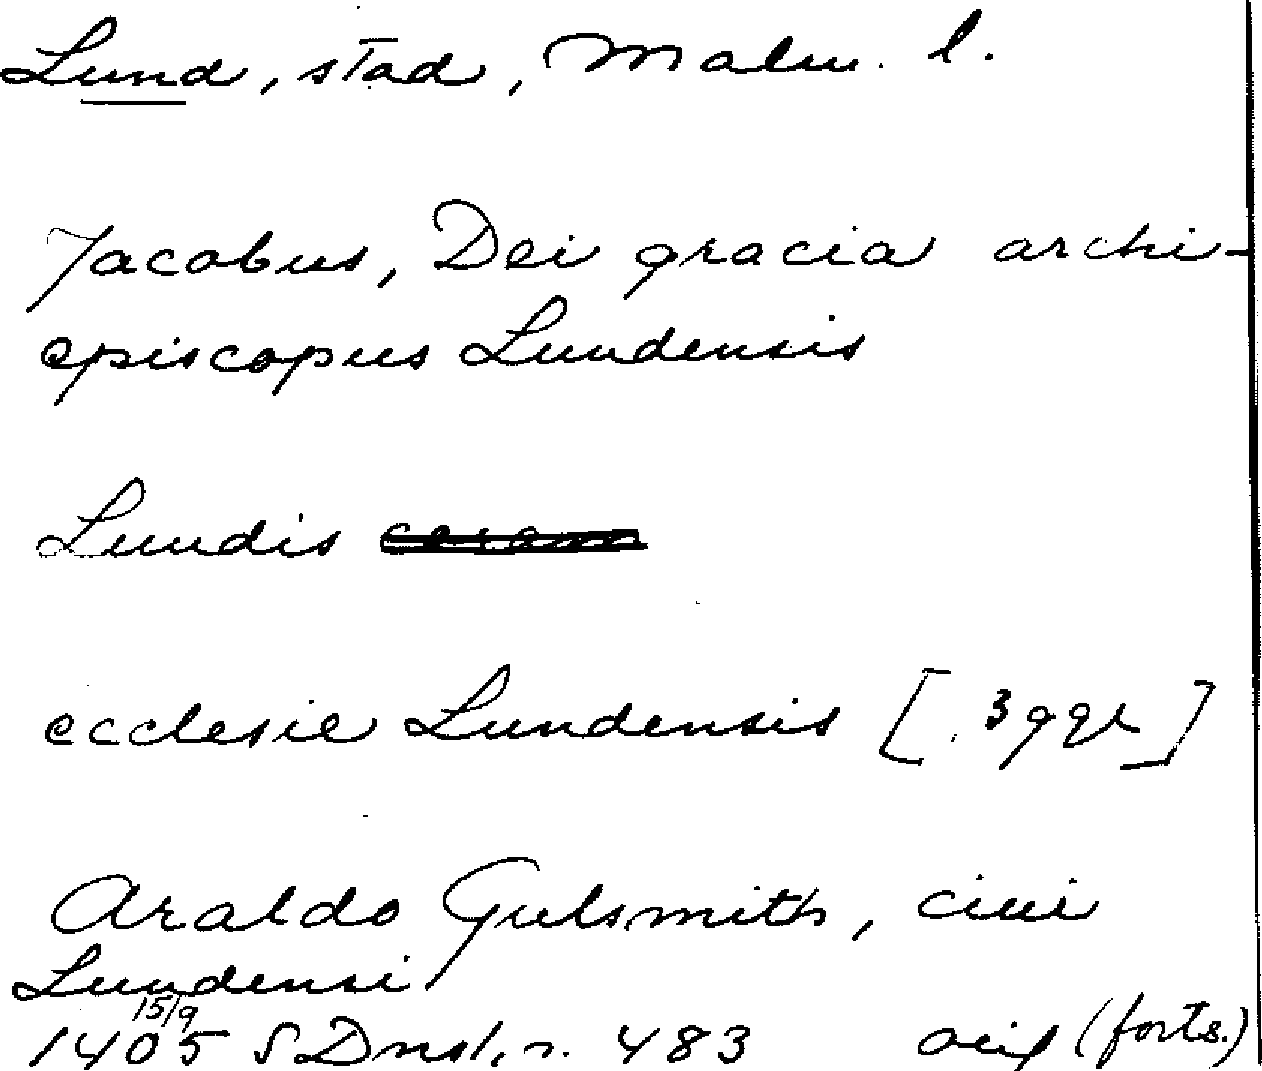 Lund, stad, Malm. l.
Jacobus, Dei gracia archi-
episcopus Lundensis
Lundis coram
ecclesie Lundensis [3 ggr]
Araldo Gulsmith, ciui
Lundensi
15/9
1405 SDnsl, n. 483 (forts.)